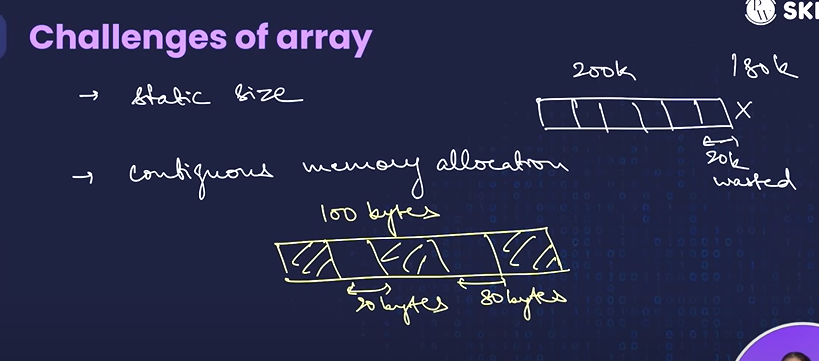 SKI
Challenges of array
→ static size
200k
180k
X
20k
wasted
→ contiguous memory allocation
100 bytes
20bytes
80bytes